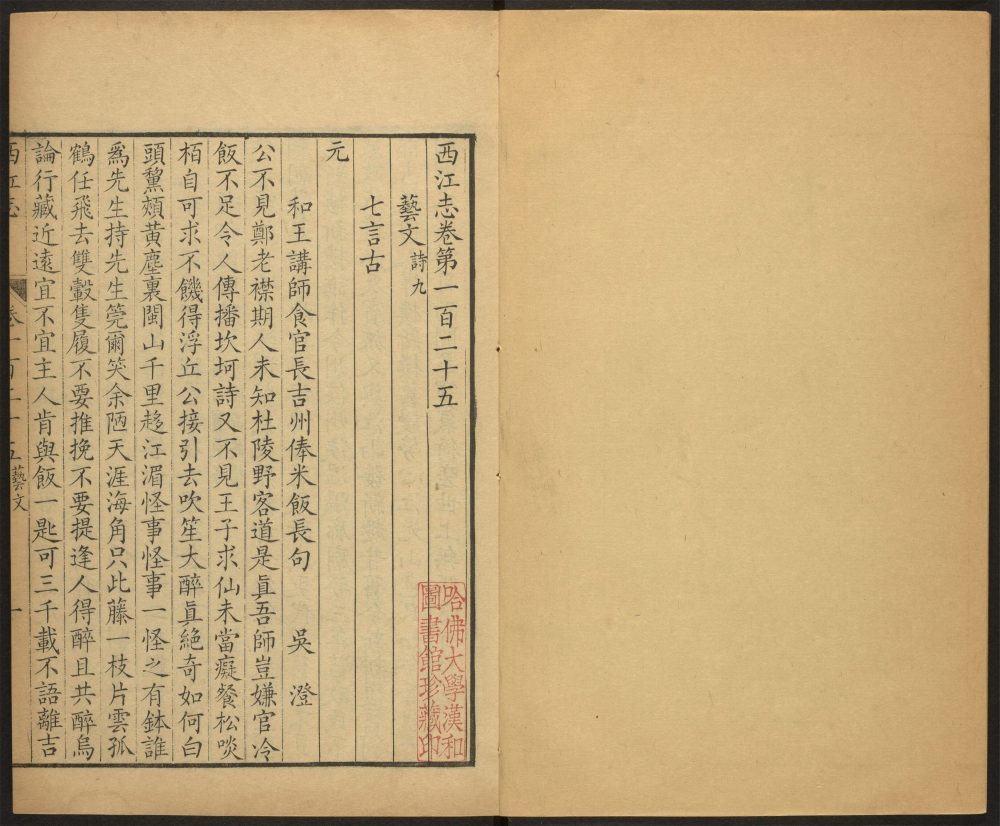 西江志卷第一百二十五
藝文 詩九
七言古
元
和王講師食官長吉州俸米飯長句 吳 澄
公不見鄭老襟期人未知杜陵野客道是眞吾師豈嫌官冷
飯不足令人傳播坎坷詩又不見王子求仙未當癡餐松啖
栢自可求不饑得浮丘公接引去吹笙大醉眞絶奇如何白
頭黧頰黃塵裏閩山千里趍江湄怪事怪事一怪之有鉢誰
爲先生持先生筦爾笑余陋天涯海角只此藤一枝片雲孤
鶴任飛去雙轂隻履不要推挽不要提逢人得醉且共醉烏
論行藏近遠宜不宜主人肯與飯一匙可三千載不語離吉
西江志 卷一百二十五 藝文 一
哈佛大學漢和
圖書館珍藏印